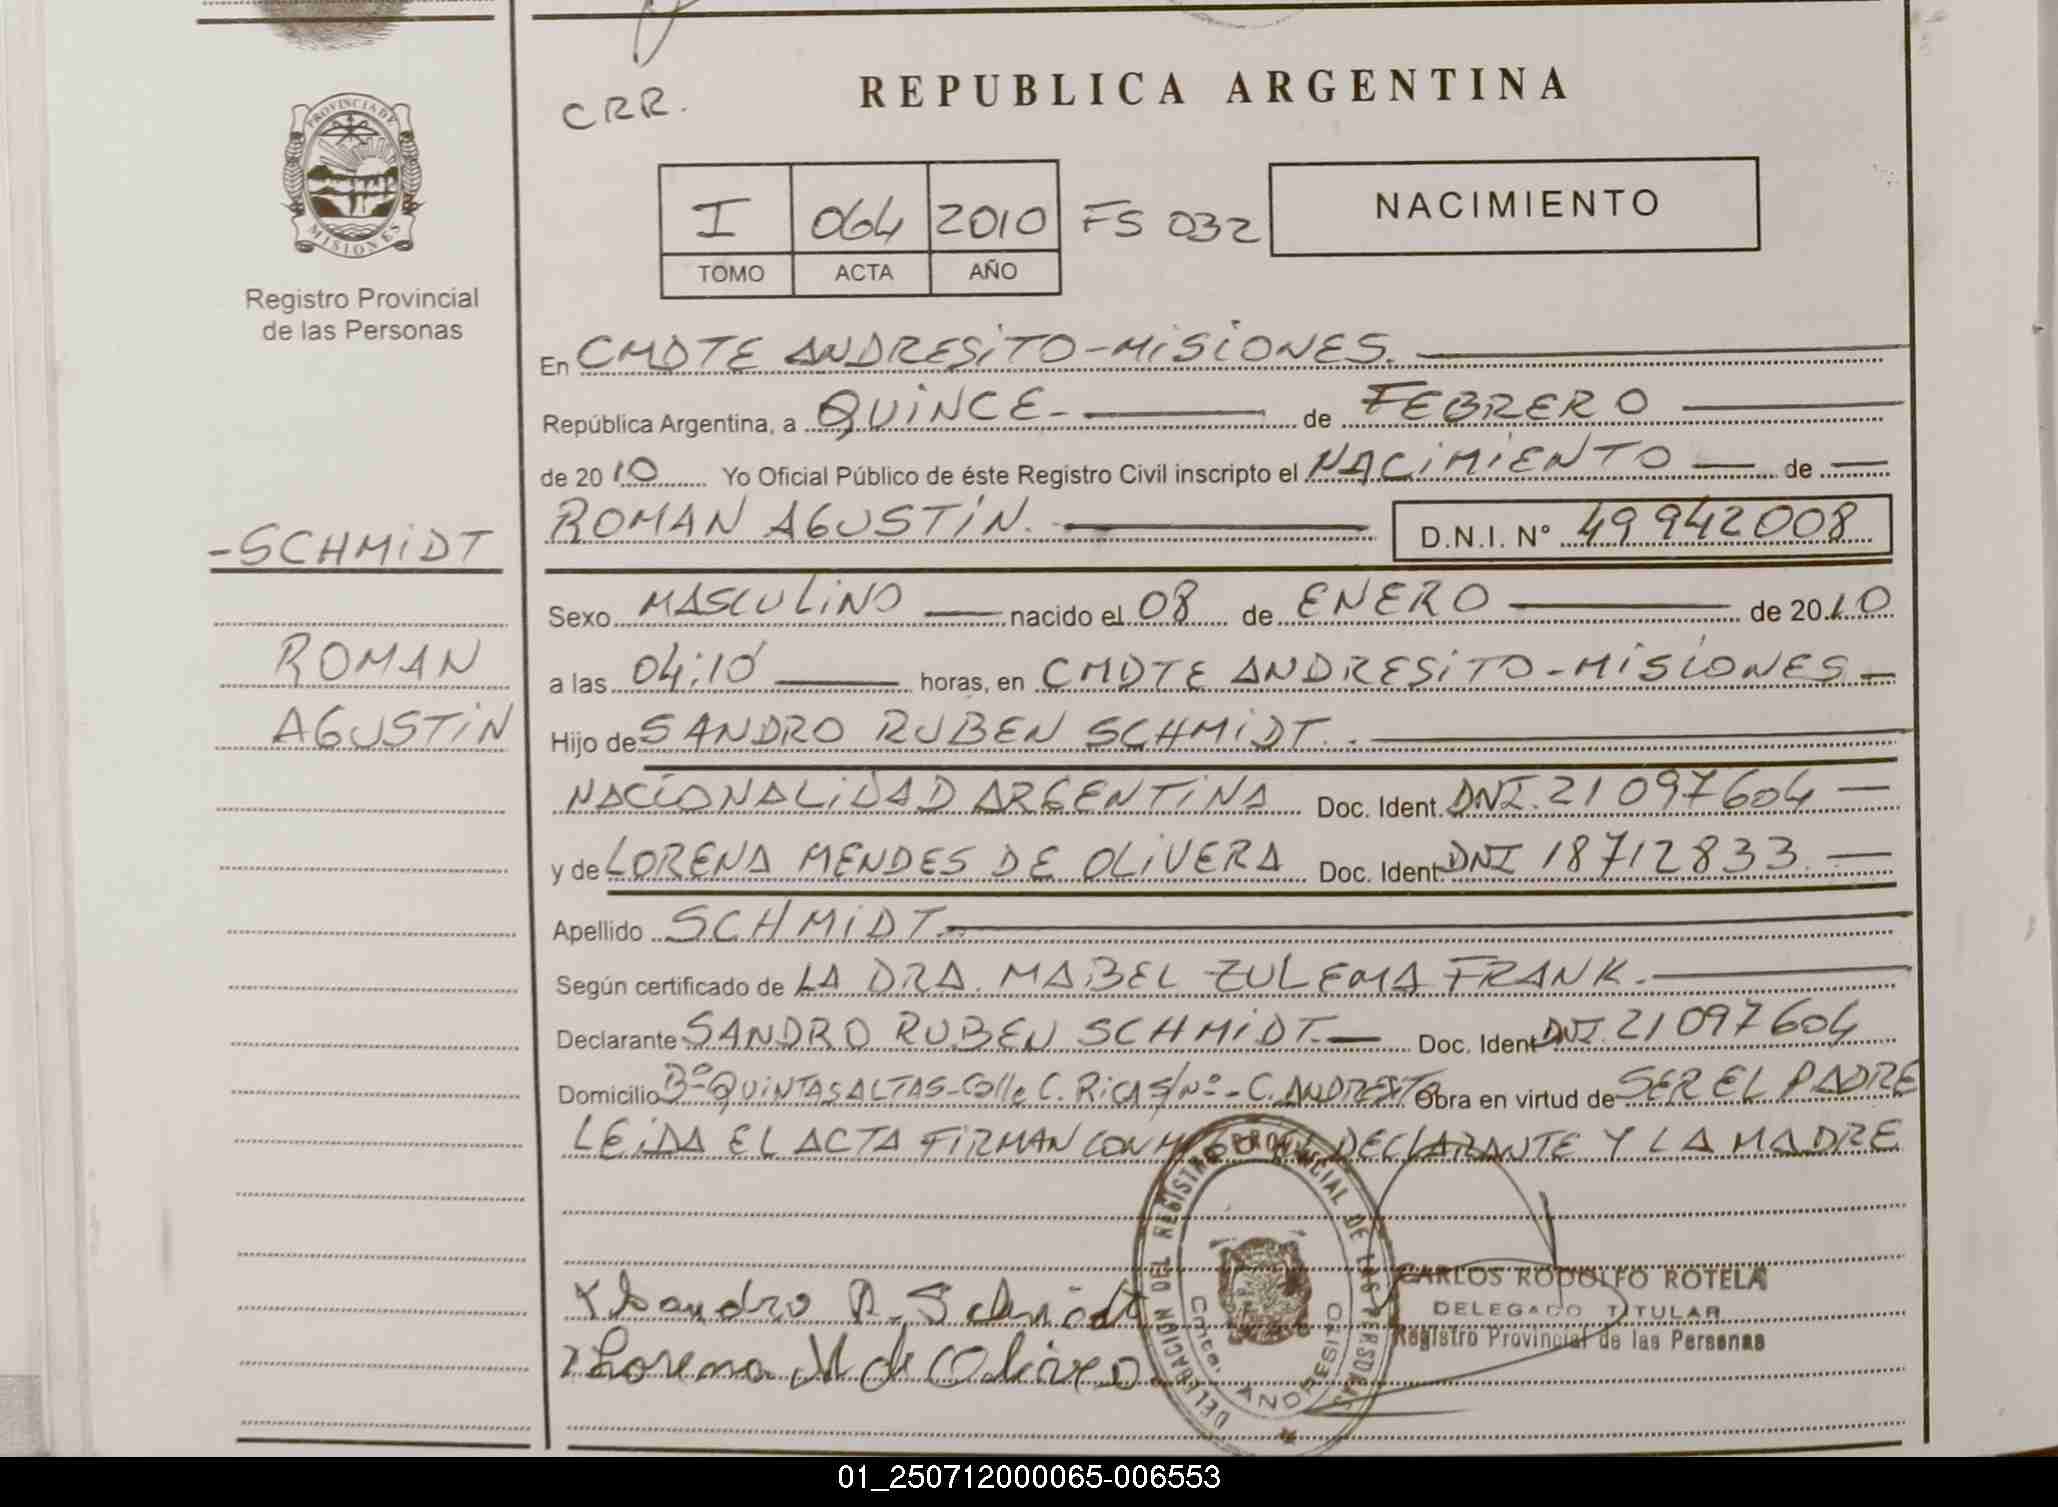 CRR.
REPUBLICA ARGENTINA
PROVINCIA DE
MISIONES
Registro Provincial
de las Personas
I 064 2010 FS 032
TOMO ACTA AÑO
NACIMIENTO
En CMDTE ANDRESITO-MISIONES.
República Argentina, a QUINCE- de FEBRERO
de 2010 Yo Oficial Público de éste Registro Civil inscripto el NACIMIENTO de
ROMAN AGUSTIN. D.N.I. Nº 49942008
-SCHMIDT
ROMAN
AGUSTIN
Sexo MASCULINO nacido el 08 de ENERO de 2010
a las 04:10 horas, en CMDTE ANDRESITO-MISIONES
Hijo de SANDRO RUBEN SCHMIDT.
NACIONALIDAD ARGENTINA Doc. Ident. DNI. 21097604
y de LORENA MENDES DE OLIVERA Doc. Ident DNI 18712833.
Apellido SCHMIDT
Según certificado de LA DRA. MABEL ZULEMA FRANK.
Declarante SANDRO RUBEN SCHMIDT. Doc. Ident DNI. 21097604
Domicilio Bº QUINTAS ALTAS-Calle C. RICA S/Nº-C. ANDRESITO Obra en virtud de SER EL PADRE
LEIDA EL ACTA FIRMAN CONMIGO EL DECLARANTE Y LA MADRE
Sandro R. Schmidt
Lorena M de Olivera
DELEGACION DEL REGISTRO PROVINCIAL DE LAS PERSONAS
Cmte. ANDRESITO
CARLOS RODOLFO ROTELA
DELEGADO TITULAR
Registro Provincial de las Personas
01_250712000065-006553